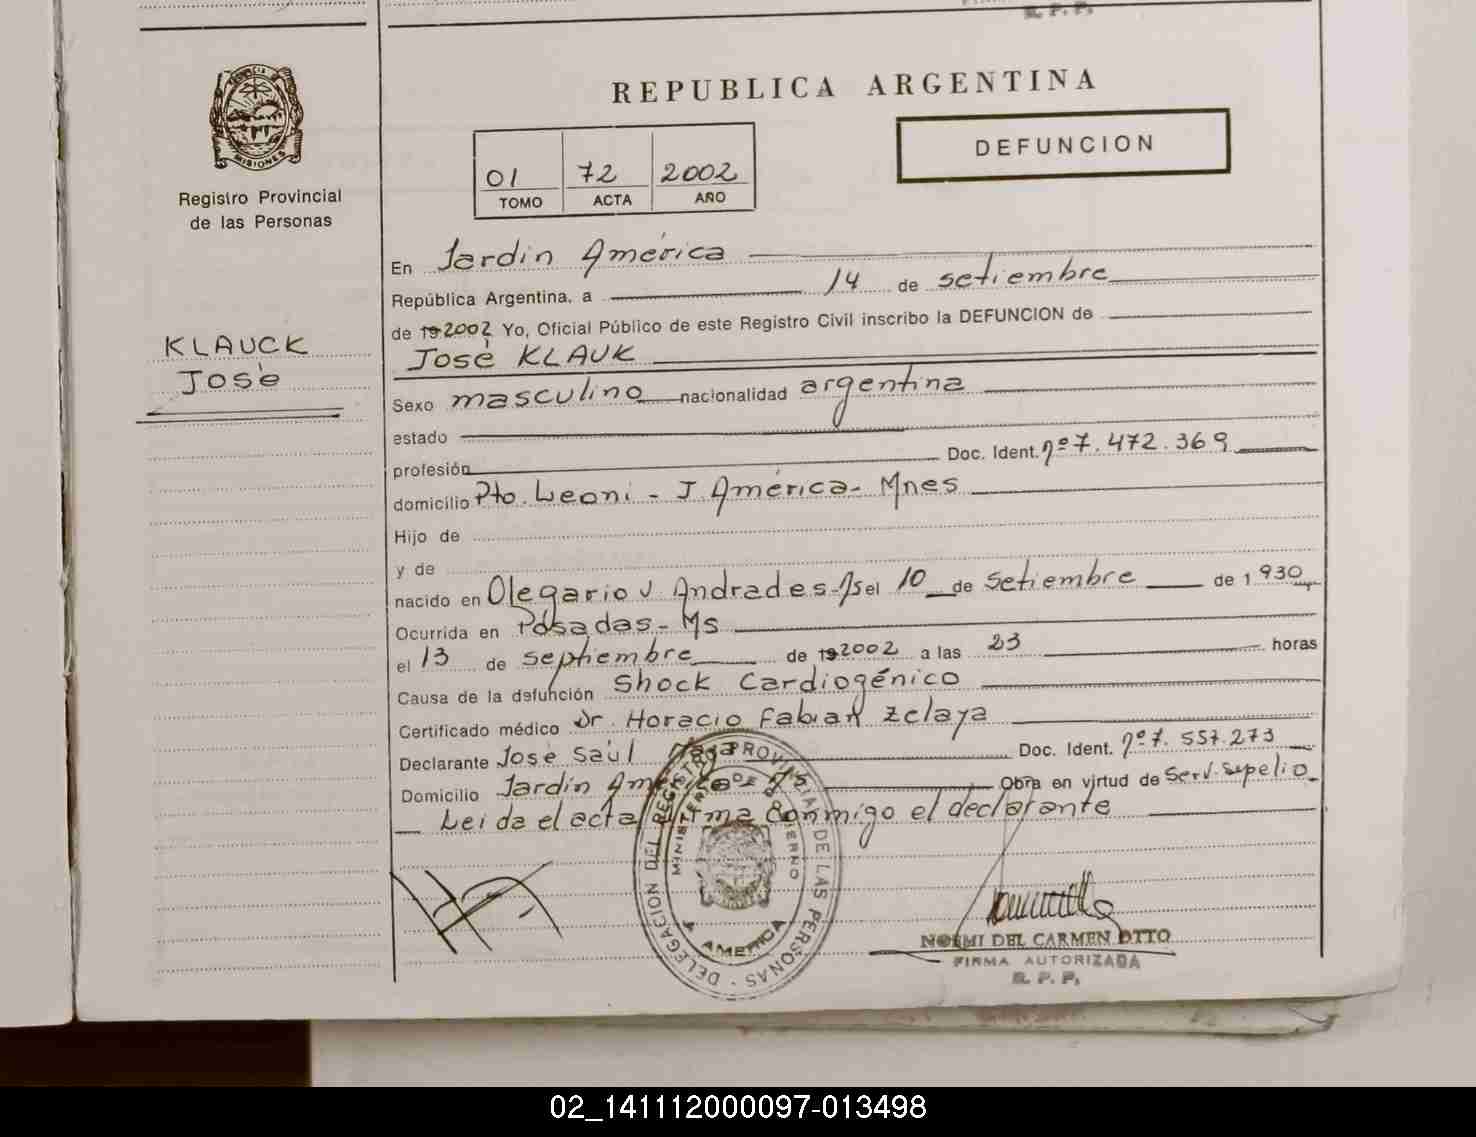 R. P. P.
PROVINCIA DE
MISIONES
Registro Provincial
de las Personas
KLAUCK
José
REPUBLICA ARGENTINA
01 72 2002
TOMO ACTA AÑO
DEFUNCION
En Jardin América
República Argentina, a 14 de setiembre
de 192002 Yo, Oficial Público de este Registro Civil inscribo la DEFUNCION de
José KLAUK
Sexo masculino nacionalidad argentina
estado
profesión Doc. Ident. nº 7.472.369
domicilio Pto. Leoni - J. América - Mnes
Hijo de
y de
nacido en Olegario V Andrades - Ms el 10 de setiembre de 1930
Ocurrida en Posadas - Ms
el 13 de septhembre de 192002 a las 23 horas
Causa de la defunción Shock Cardiogénico
Certificado médico Dr. Horacio Fabian Zelaya
Declarante José Saúl Doc. Ident. nº 7.557.273
Domicilio Jardín América Obra en virtud de Serv. Sepelio
Leida el acta firma conmigo el declarante
DELEGACION DEL REGISTRO PROVINCIAL DE LAS PERSONAS
MINISTERIO DE GOBIERNO
J. AMERICA
NOEMI DEL CARMEN OTTO
FIRMA AUTORIZADA
R. P. P.
02_141112000097-013498